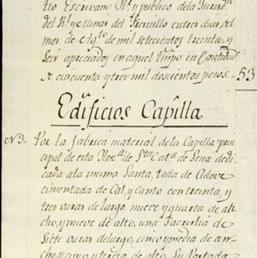 trio Escrivano Rl. y publico de la Jurisdn.
del Rl. y Minas del Fresnillo entres dias del
mes de Agto. de mil setecientos treinta, y
seis apreciados en aquel tiempo en Cantidad
de cincuenta y tres mil doscientos pesos
53
Edificios Capilla
N.3. Por la fabrica material de la Capilla prin
cipal de esta de Sena dedi
cada ala misma Santa, toda de Adove
cimentada de Cal, y Canto con treinta, y
tres varas de largo, nueve y quarta de an
cho, y nueve de alto, una Sacristia de
siete varas de largo, cinco y media de an
cho, y cinco y tercia de alto, su Portada